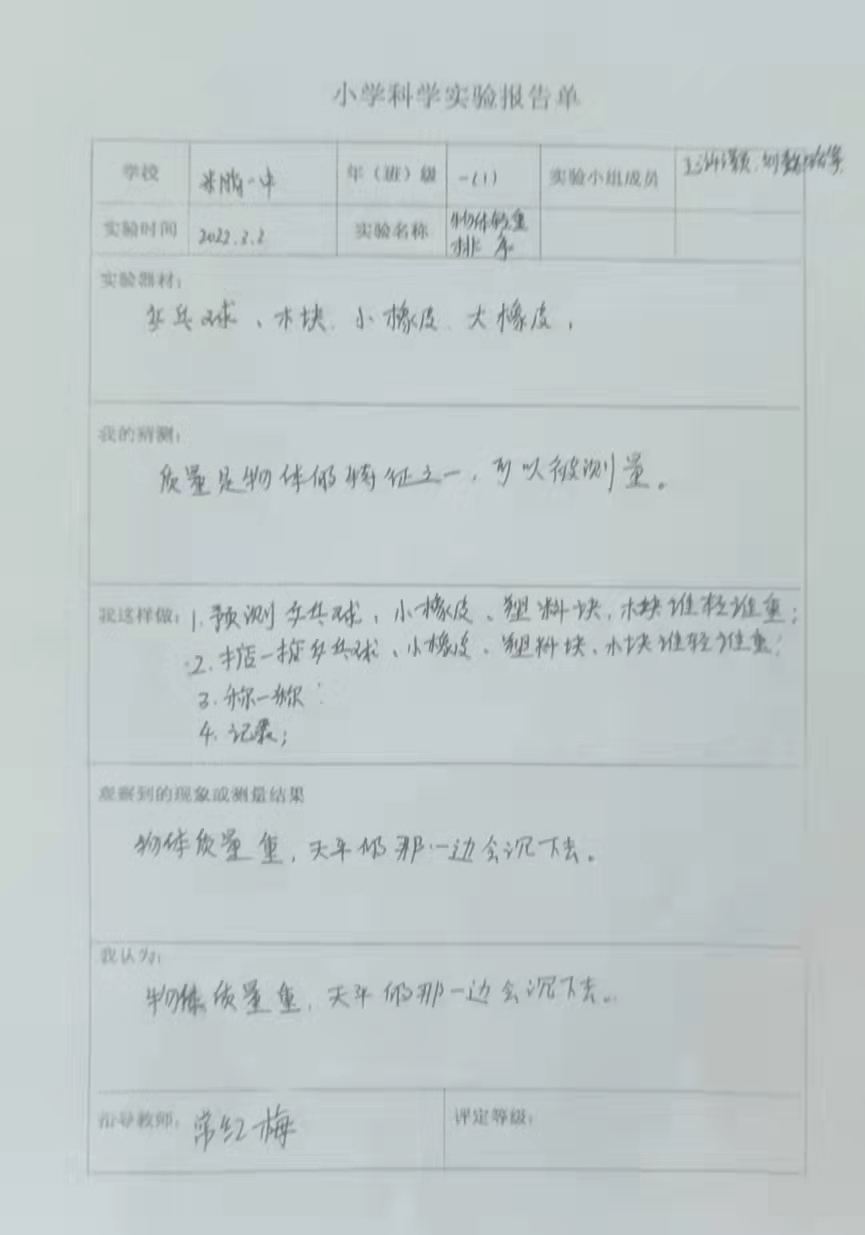 小学科学实验报告单
学校 米脂一中 年（班）级 一(1) 实验小组成员
实验时间 2022.2.2 实验名称 物体轻重
排序
实验器材：
乒乓球、木块、小橡皮、大橡皮，
我的猜测：
质量是物体的特征之一，可以被测量。
我这样做：1.预测乒乓球，小橡皮、塑料块，木块谁轻谁重；
2.掂一掂乒乓球、小橡皮、塑料块、木块谁轻谁重；
3.称一称
4.记录；
观察到的现象或测量结果
物体质量重，天平的那一边会沉下去。
我认为：
物体质量重，天平的那一边会沉下去。
指导教师：常红梅 评定等级：